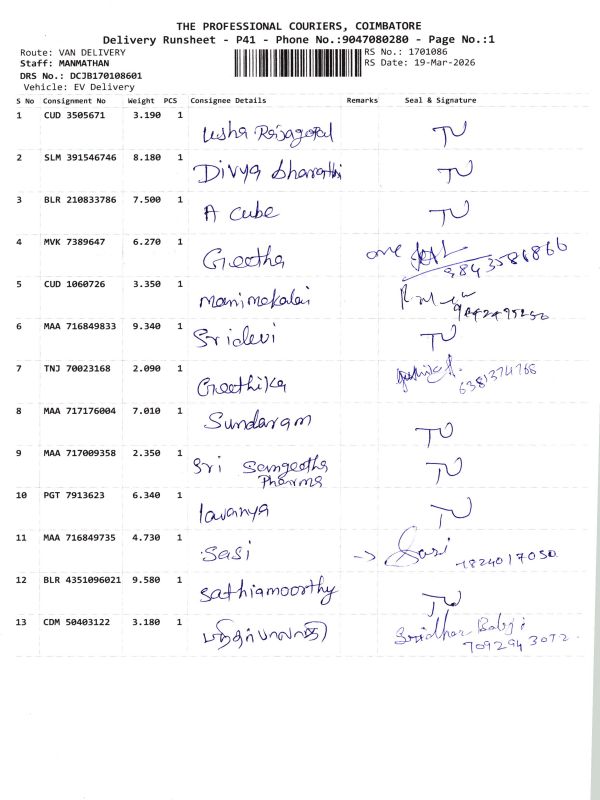 THE PROFESSIONAL COURIERS, COIMBATORE
Delivery Runsheet - P41 - Phone No.:9047080280 - Page No.:1
Route: VAN DELIVERY RS No.: 1701086
Staff: MANMATHAN RS Date: 19-Mar-2026
DRS No.: DCJB170108601
Vehicle: EV Delivery
S No Consignment No Weight PCS Consignee Details Remarks Seal & Signature
1 CUD 3505671 3.190 1 Usha Rajagopal TU
2 SLM 391546746 8.180 1 Divya bharathi TU
3 BLR 210833786 7.500 1 A cube TU
4 MVK 7389647 6.270 1 Geetha
9843586866
5 CUD 1060726 3.350 1 manimekalai
6 MAA 716849833 9.340 1 Sridevi TU
7 TNJ 70023168 2.090 1 Geethika
6381374768
8 MAA 717176004 7.010 1 Sundaram TU
9 MAA 717009358 2.350 1 Sri Sangeetha TU
Pharma
10 PGT 7913623 6.340 1 lavanya TU
11 MAA 716849735 4.730 1 Sasi → Sasi
7824017050
12 BLR 4351096021 9.580 1 Sathiamoorthy TU
13 CDM 50403122 3.180 1 Sridhar Balaji
7092943072